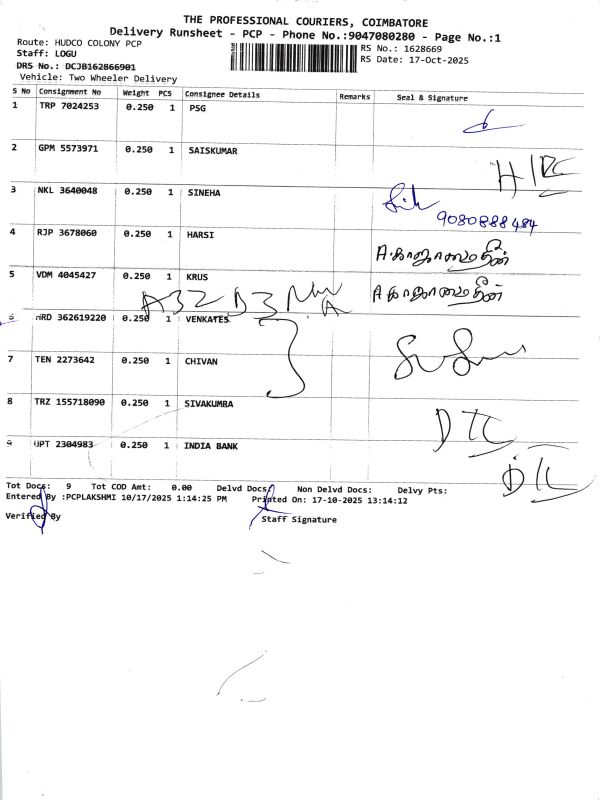 THE PROFESSIONAL COURIERS, COIMBATORE
Delivery Runsheet - PCP - Phone No.:9047080280 - Page No.:1
Route: HUDCO COLONY PCP
RS No.: 1628669
Staff: LOGU
RS Date: 17-Oct-2025
DRS No.: DCJB162866901
Vehicle: Two Wheeler Delivery
S No Consignment No Weight PCS Consignee Details Remarks Seal & Signature
1 TRP 7024253 0.250 1 PSG
2 GPM 5573971 0.250 1 SAISKUMAR
3 NKL 3640048 0.250 1 SINEHA
9080888484
4 RJP 3678060 0.250 1 HARSI
A.காஜாமைதீன்
5 VDM 4045427 0.250 1 KRUS
A காஜாமைதீன்
A32 B3
6 HRD 362619220 0.250 1 VENKATES
7 TEN 2273642 0.250 1 CHIVAN
8 TRZ 155718090 0.250 1 SIVAKUMRA
DTC
9 UPT 2304983 0.250 1 INDIA BANK
DTC
Tot Docs: 9 Tot COD Amt: 0.00 Delvd Docs: Non Delvd Docs: Delvy Pts:
Entered By :PCPLAKSHMI 10/17/2025 1:14:25 PM Printed On: 17-10-2025 13:14:12
Verified By
Staff Signature